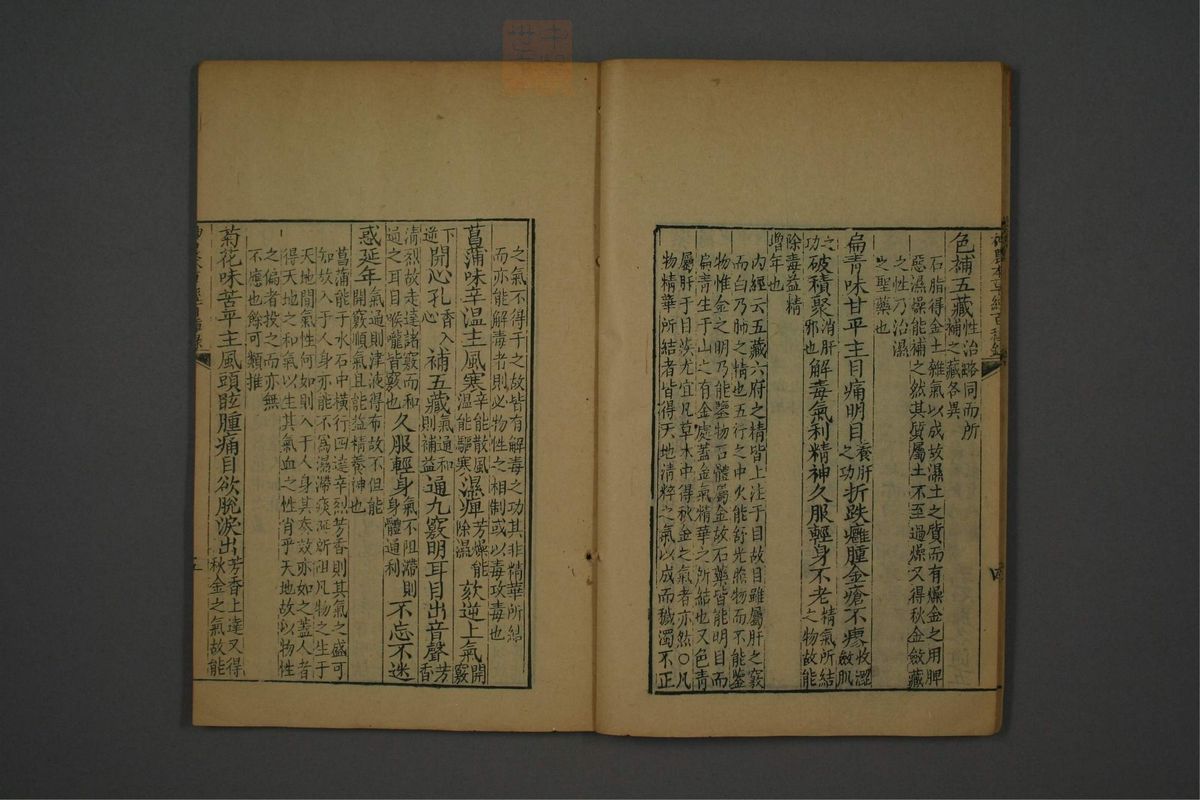 神農本草經百種錄
色補五藏性治略同而所補之藏各異
石脂得金土雜氣以成故濕土之質而有燥金之用脾
惡濕燥能補之然其質屬土不至過燥又得秋金斂藏
之性乃治濕
之聖藥也
扁青味甘平主目痛明目養肝之功折跌癰腫金瘡不瘳收澀斂肌
之功破積聚消肝邪也解毒氣利精神久服輕身不老精氣所結之物故能
除毒益精增年也
內經云五藏六府之精皆上注于目故目雖屬肝之竅
而白乃肺之精也五行之中火能舒光照物而不能鑒
物惟金之明乃能鑒物石體屬金故石藥皆能明目而
扁青生于山之有金處蓋金氣精華之所結也又色青
屬肝于目疾尤宜凡草木中得秋金之氣者亦然〇凡
物精華所結者皆得天地清粹之氣以成而穢濁不正
四
之氣不得于之故皆有解毒之功其非精華所結
而亦能解毒者則必物性之相制或以毒攻毒也
菖蒲味辛溫主風寒辛能散風溫能驅寒濕痺芳燥能除濕欬逆上氣開竅
下逆開心孔香入心補五藏氣通和則補益通九竅明耳目出音聲芳香
清烈故走達諸竅而和通之耳目喉嚨皆竅也久服輕身氣不阻滯則身體通利不忘不迷
惑延年氣通則津液得布故不但能開竅順氣且能益精養神也
菖蒲能于水石中橫行四達辛烈芳香則其氣之盛可
知故入于人身亦能不為濕滯痰涎所阻凡物之生于
天地間氣性何如則入于人身其奏效亦如之蓋人者
得天地之和氣以生其氣血之性肖乎天地故以物性
之偏者投之而亦無
不應也餘可類推
菊花味苦平主風頭眩腫痛目欲脫淚出芳香上達又得秋金之氣故能
五